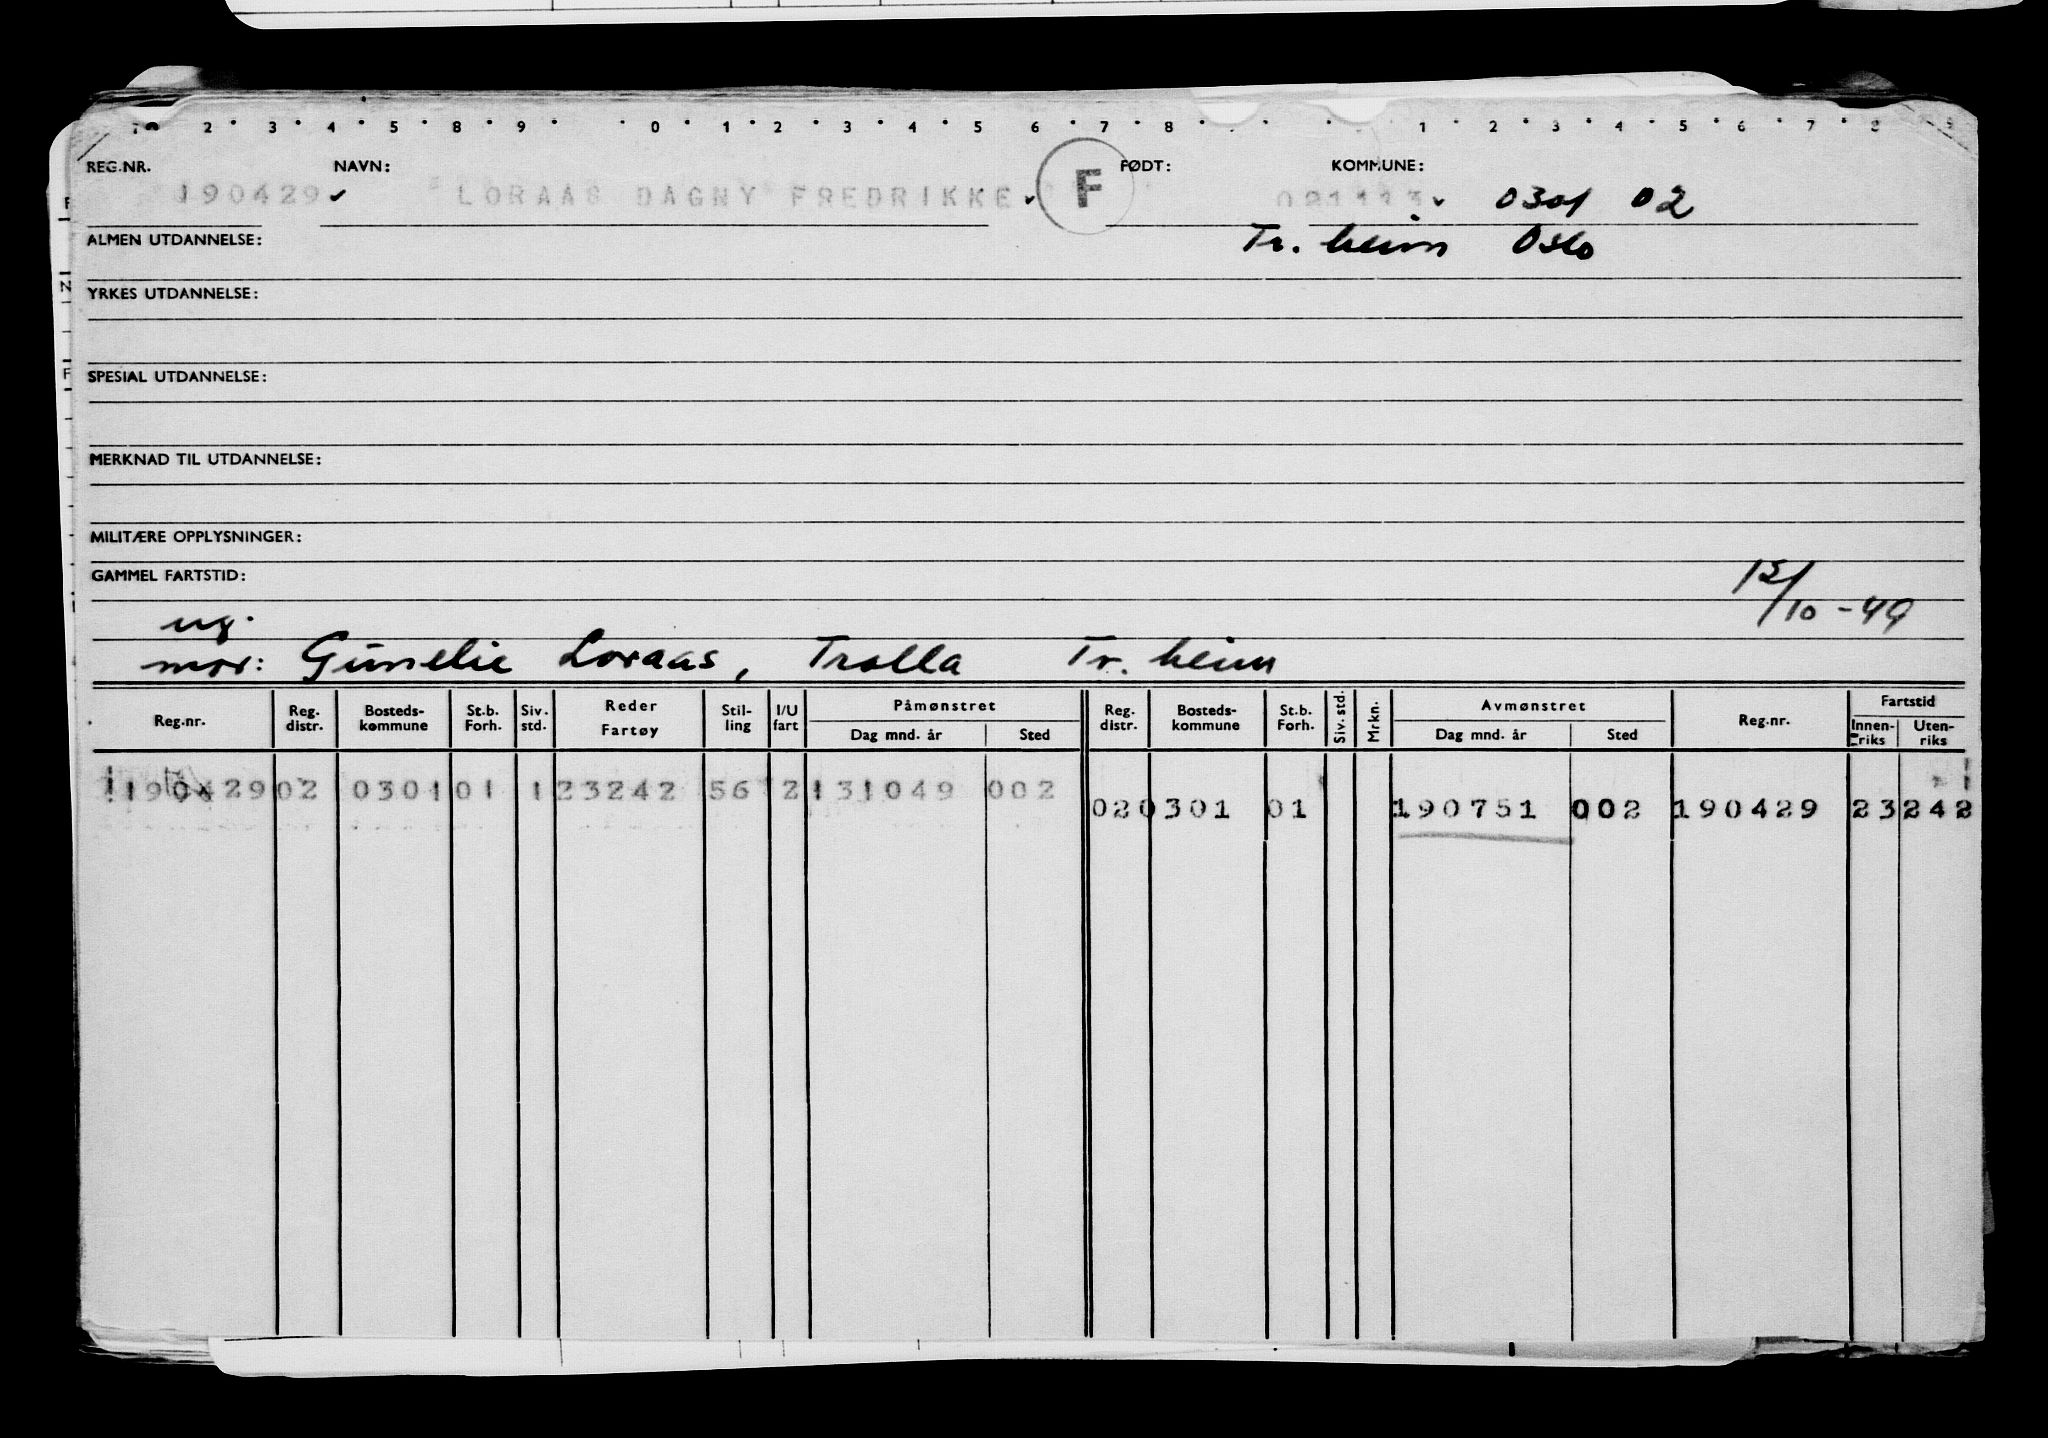 1 2 3 4 5 8 9 0 1 2 3 4 5 6 7 8 1 2 3 4 5 6 7 8 9
REG.NR. NAVN: FØDT: KOMMUNE:
190429 LORAAS DAGNY FREDRIKKE F 021113 0301 02
ALMEN UTDANNELSE: Tr. heim Oslo
YRKES UTDANNELSE:
SPESIAL UTDANNELSE:
MERKNAD TIL UTDANNELSE:
MILITÆRE OPPLYSNINGER:
GAMMEL FARTSTID: 15/10-49
ug.
mor: Gunelie Loraas, Trolla Tr. heim
Reg.nr. Reg. distr. Bosteds-kommune St.b. Forh. Siv. std. Reder Fartøy Stil-ling I/U fart Påmønstret Dag mnd. år Sted Reg. distr. Bosteds-kommune St.b. Forh. Siv. std. Mrkn. Avmønstret Dag mnd. år Sted Reg.nr. Fartstid Innen-riks Uten-riks
190429 02 0301 01 1 23242 56 2 131049 002
02 0301 01 190751 002 190429 23242